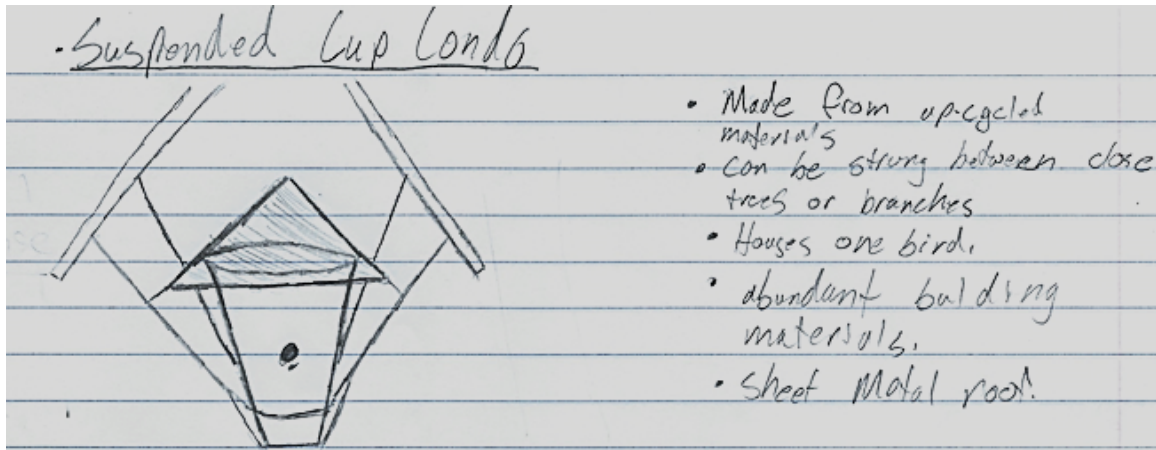 · Suspended Cup Condo
• Made from up-cycled
materials
• can be strung between close
trees or branches
• Houses one bird.
• abundant building
materials.
• Sheet Metal roof.